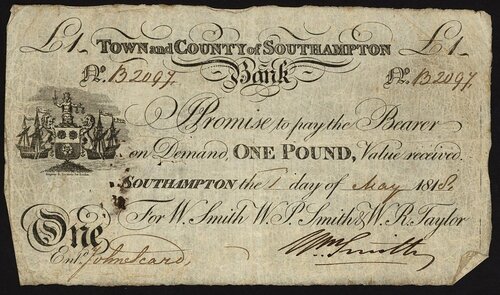 £1_ TOWN and COUNTY of SOUTHAMPTON £1_
No. B2097. Bank No. B2097.
I Promise to pay the Bearer
on Demand, ONE POUND, Value received.
SOUTHAMPTON the 1 day of May 1818.
For W. Smith W. P. Smith & W. R. Taylor
One
Entd. John Icard, Wm. Smith